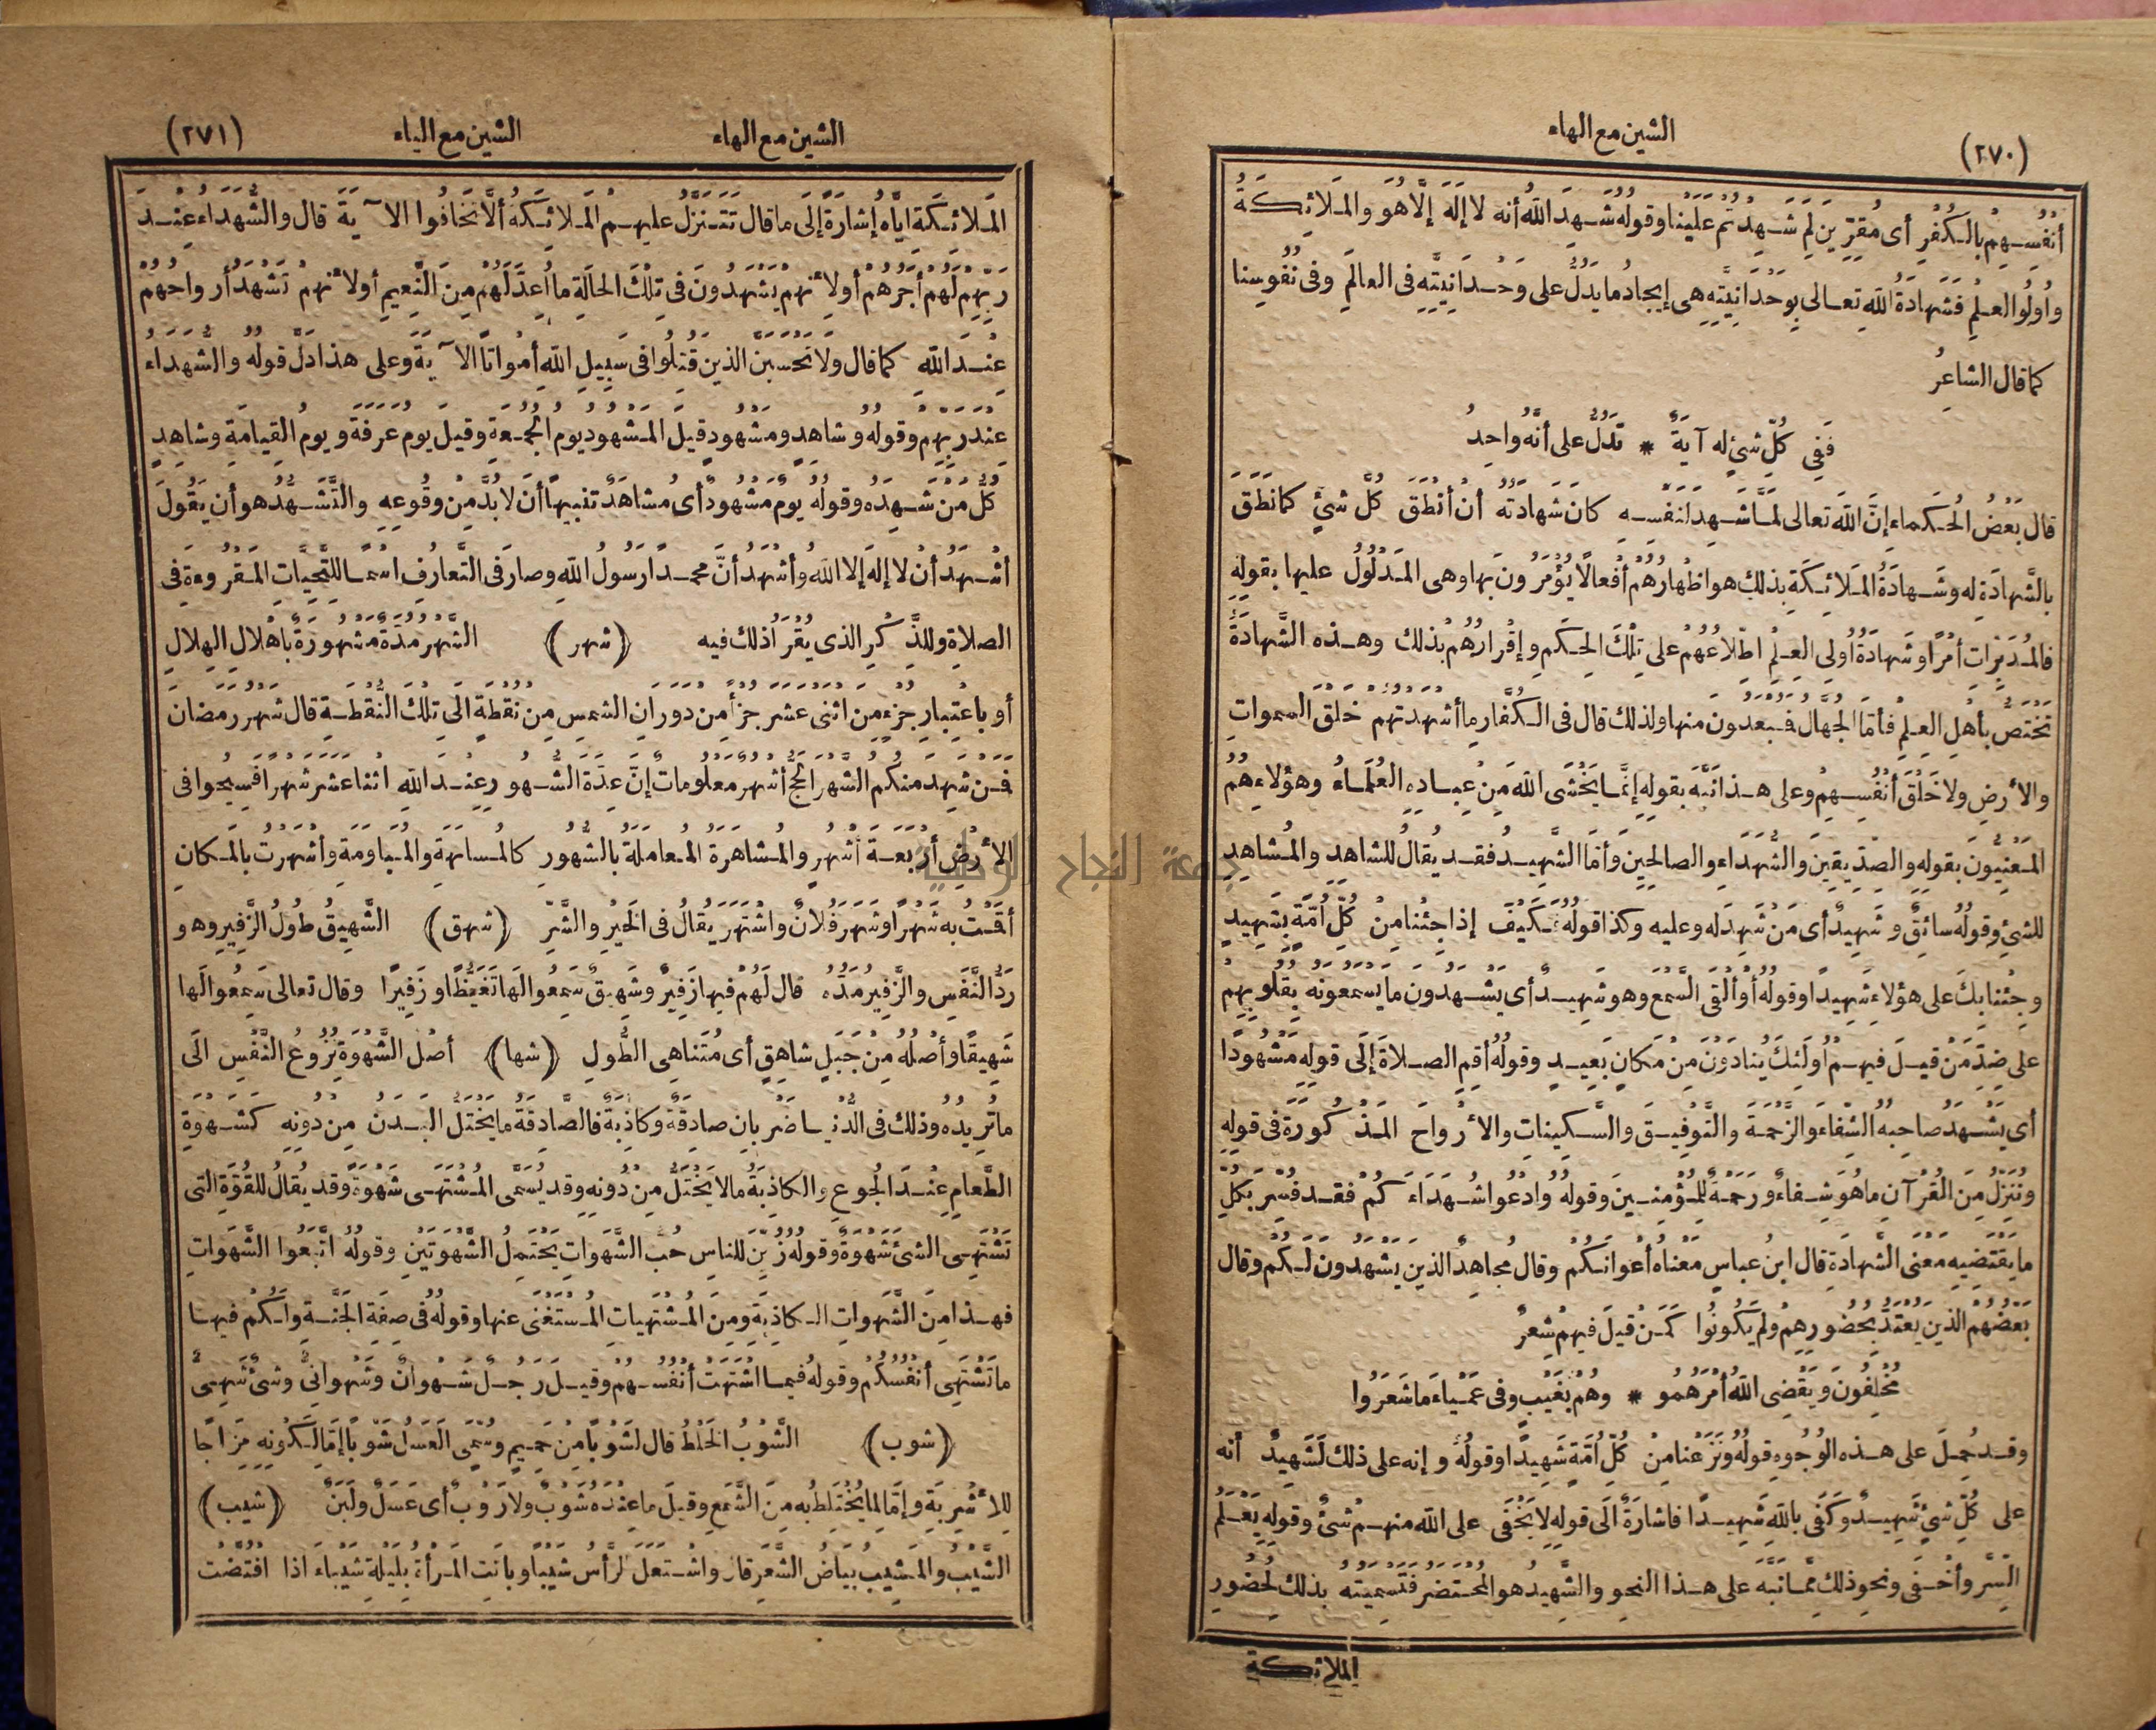 (٢٧٠)
الشين مع الهاء
أنفسهم بالكفر أى مقرين لم شهدتم علينا وقوله شهد الله أنه لا إله إلا هو والملائكة
وأولوا العلم فشهادة الله تعالى بوحدانيته هى إيجاد ما يدل على وحدانيته فى العالم وفى نفوسنا
كما قال الشاعر
ففى كل شئ له آية * تدل على أنه واحد
قال بعض الحكماء إن الله تعالى لما شهد لنفسه كان شهادته أن أنطق كل شئ كما نطق
بالشهادة له وشهادة الملائكة بذلك هو اظهارهم أفعالا يؤمرون بها وهى المدلول عليها بقوله
فالمدبرات أمرا وشهادة أولى العلم اطلاعهم على تلك الحكم وإقرارهم بذلك وهذه الشهادة
تختص بأهل العلم فأما الجهال فبعدون منها ولذلك قال فى الكفار ما أشهدتهم خلق السموات
والأرض ولا خلق أنفسهم وعلى هذا نبه بقوله إنما يخشى الله من عباده العلماء وهؤلاء هم
المعنيون بقوله والصديقين والشهداء والصالحين وأما الشهيد فقد يقال للشاهد والمشاهد
للشئ وقوله سائق وشهيد أى من شهد له وعليه وكذا قوله فكيف إذا جئنا من كل أمة بشهيد
وجئنا بك على هؤلاء شهيدا وقوله أو ألقى السمع وهو شهيد أى يشهدون ما يسمعونه بقلوبهم
على ضد من قيل فيهم أولئك ينادون من مكان بعيد وقوله أقم الصلاة إلى قوله مشهودا
أى يشهد صاحبه الشفاء والرحمة والتوفيق والسكينات والأرواح المذكورة فى قوله
وننزل من القرآن ما هو شفاء ورحمة للمؤمنين وقوله وادعوا شهداء كم فقد فسر بكل
ما يقتضيه معنى الشهادة قال ابن عباس معناه أعوانكم وقال مجاهد الذين يشهدون لكم وقال
بعضهم الذين يعتد بحضورهم ولم يكونوا كمن قيل فيهم شعر
مخلفون ويقضى الله أمرهمو * وهم بغيب وفى عمياء ما شعروا
وقد حمل على هذه الوجوه قوله ونزعنا من كل أمة شهيدا وقوله وإنه على ذلك لشهيد أنه
على كل شئ شهيد وكفى بالله شهيدا فاشارة الى قوله لا يخفى على الله منهم شئ وقوله يعلم
السر وأخفى ونحو ذلك مما نبه على هذا النحو والشهيد هو المحتضر فتسميته بذلك لحضور
الملائكة
الشين مع الهاء
الشين مع الياء
(٢٧١)
الملائكة اياه إشارة إلى ما قال تتنزل عليهم الملائكة ألا تخافوا الآية قال والشهداء عند
ربهم لهم أجرهم أولأنهم يشهدون فى تلك الحالة ما أعد لهم من النعيم أولأنهم تشهد أرواحهم
عند الله كما قال ولا تحسبن الذين قتلوا فى سبيل الله أمواتا الآية وعلى هذا دل قوله والشهداء
عند ربهم وقوله وشاهد ومشهود قيل المشهود يوم الجمعة وقيل يوم عرفة ويوم القيامة وشاهد
كل من شهده وقوله يوم مشهود أى مشاهد تنبيها أن لا بد من وقوعه والتشهد هو أن يقول
أشهد أن لا إله إلا الله وأشهد أن محمدا رسول الله وصار فى التعارف اسما للتحيات المقروءة فى
الصلاة وللذكر الذى يقرأ ذلك فيه (شهر) الشهر مدة مشهورة باهلال الهلال
أو باعتبار جزء من اثنى عشر جزأ من دوران الشمس من نقطة الى تلك النقطة قال شهر رمضان
فمن شهد منكم الشهر الحج أشهر معلومات إن عدة الشهور عند الله اثنا عشر شهرا فسيحوا فى
الأرض أربعة أشهر والمشاهرة المعاملة بالشهور كالمسانهة والمياومة وأشهرت بالمكان
أقمت به شهرا وشهر فلان واشتهر يقال فى الخير والشر (شهق) الشهيق طول الزفير وهو
رد النفس والزفير مده قال لهم فيها زفير وشهيق سمعوا لها تغيظا وزفيرا وقال تعالى سمعوا لها
شهيقا وأصله من جبل شاهق أى متناهى الطول (شها) أصل الشهوة نزوع النفس الى
ما تريده وذلك فى الدنيا ضربان صادقة وكاذبة فالصادقة ما يختل البدن من دونه كشهوة
الطعام عند الجوع والكاذبة ما لا يختل من دونه وقد يسمى المشتهى شهوة وقد يقال للقوة التى
تشتهى الشئ شهوة وقوله زين للناس حب الشهوات يحتمل الشهوتين وقوله اتبعوا الشهوات
فهذا من الشهوات الكاذبة ومن المشتهيات المستغنى عنها وقوله فى صفة الجنة ولكم فيها
ما تشتهى أنفسكم وقوله فيما اشتهت أنفسهم وقيل رجل شهوان وشهوانى وشئ شهى
(شوب) الشوب الخلط قال لشوبا من حميم وسمى العسل شوبا إما لكونه مزاجا
للاشربة وإما لما يختلط به من الشمع وقيل ما عنده شوب ولا روب أى عسل ولبن (شيب)
الشيب والمشيب بياض الشعر قال واشتعل الرأس شيبا وباتت المرأة بليلة شيباء اذا افتضت
جامعة النجاح الوطنية